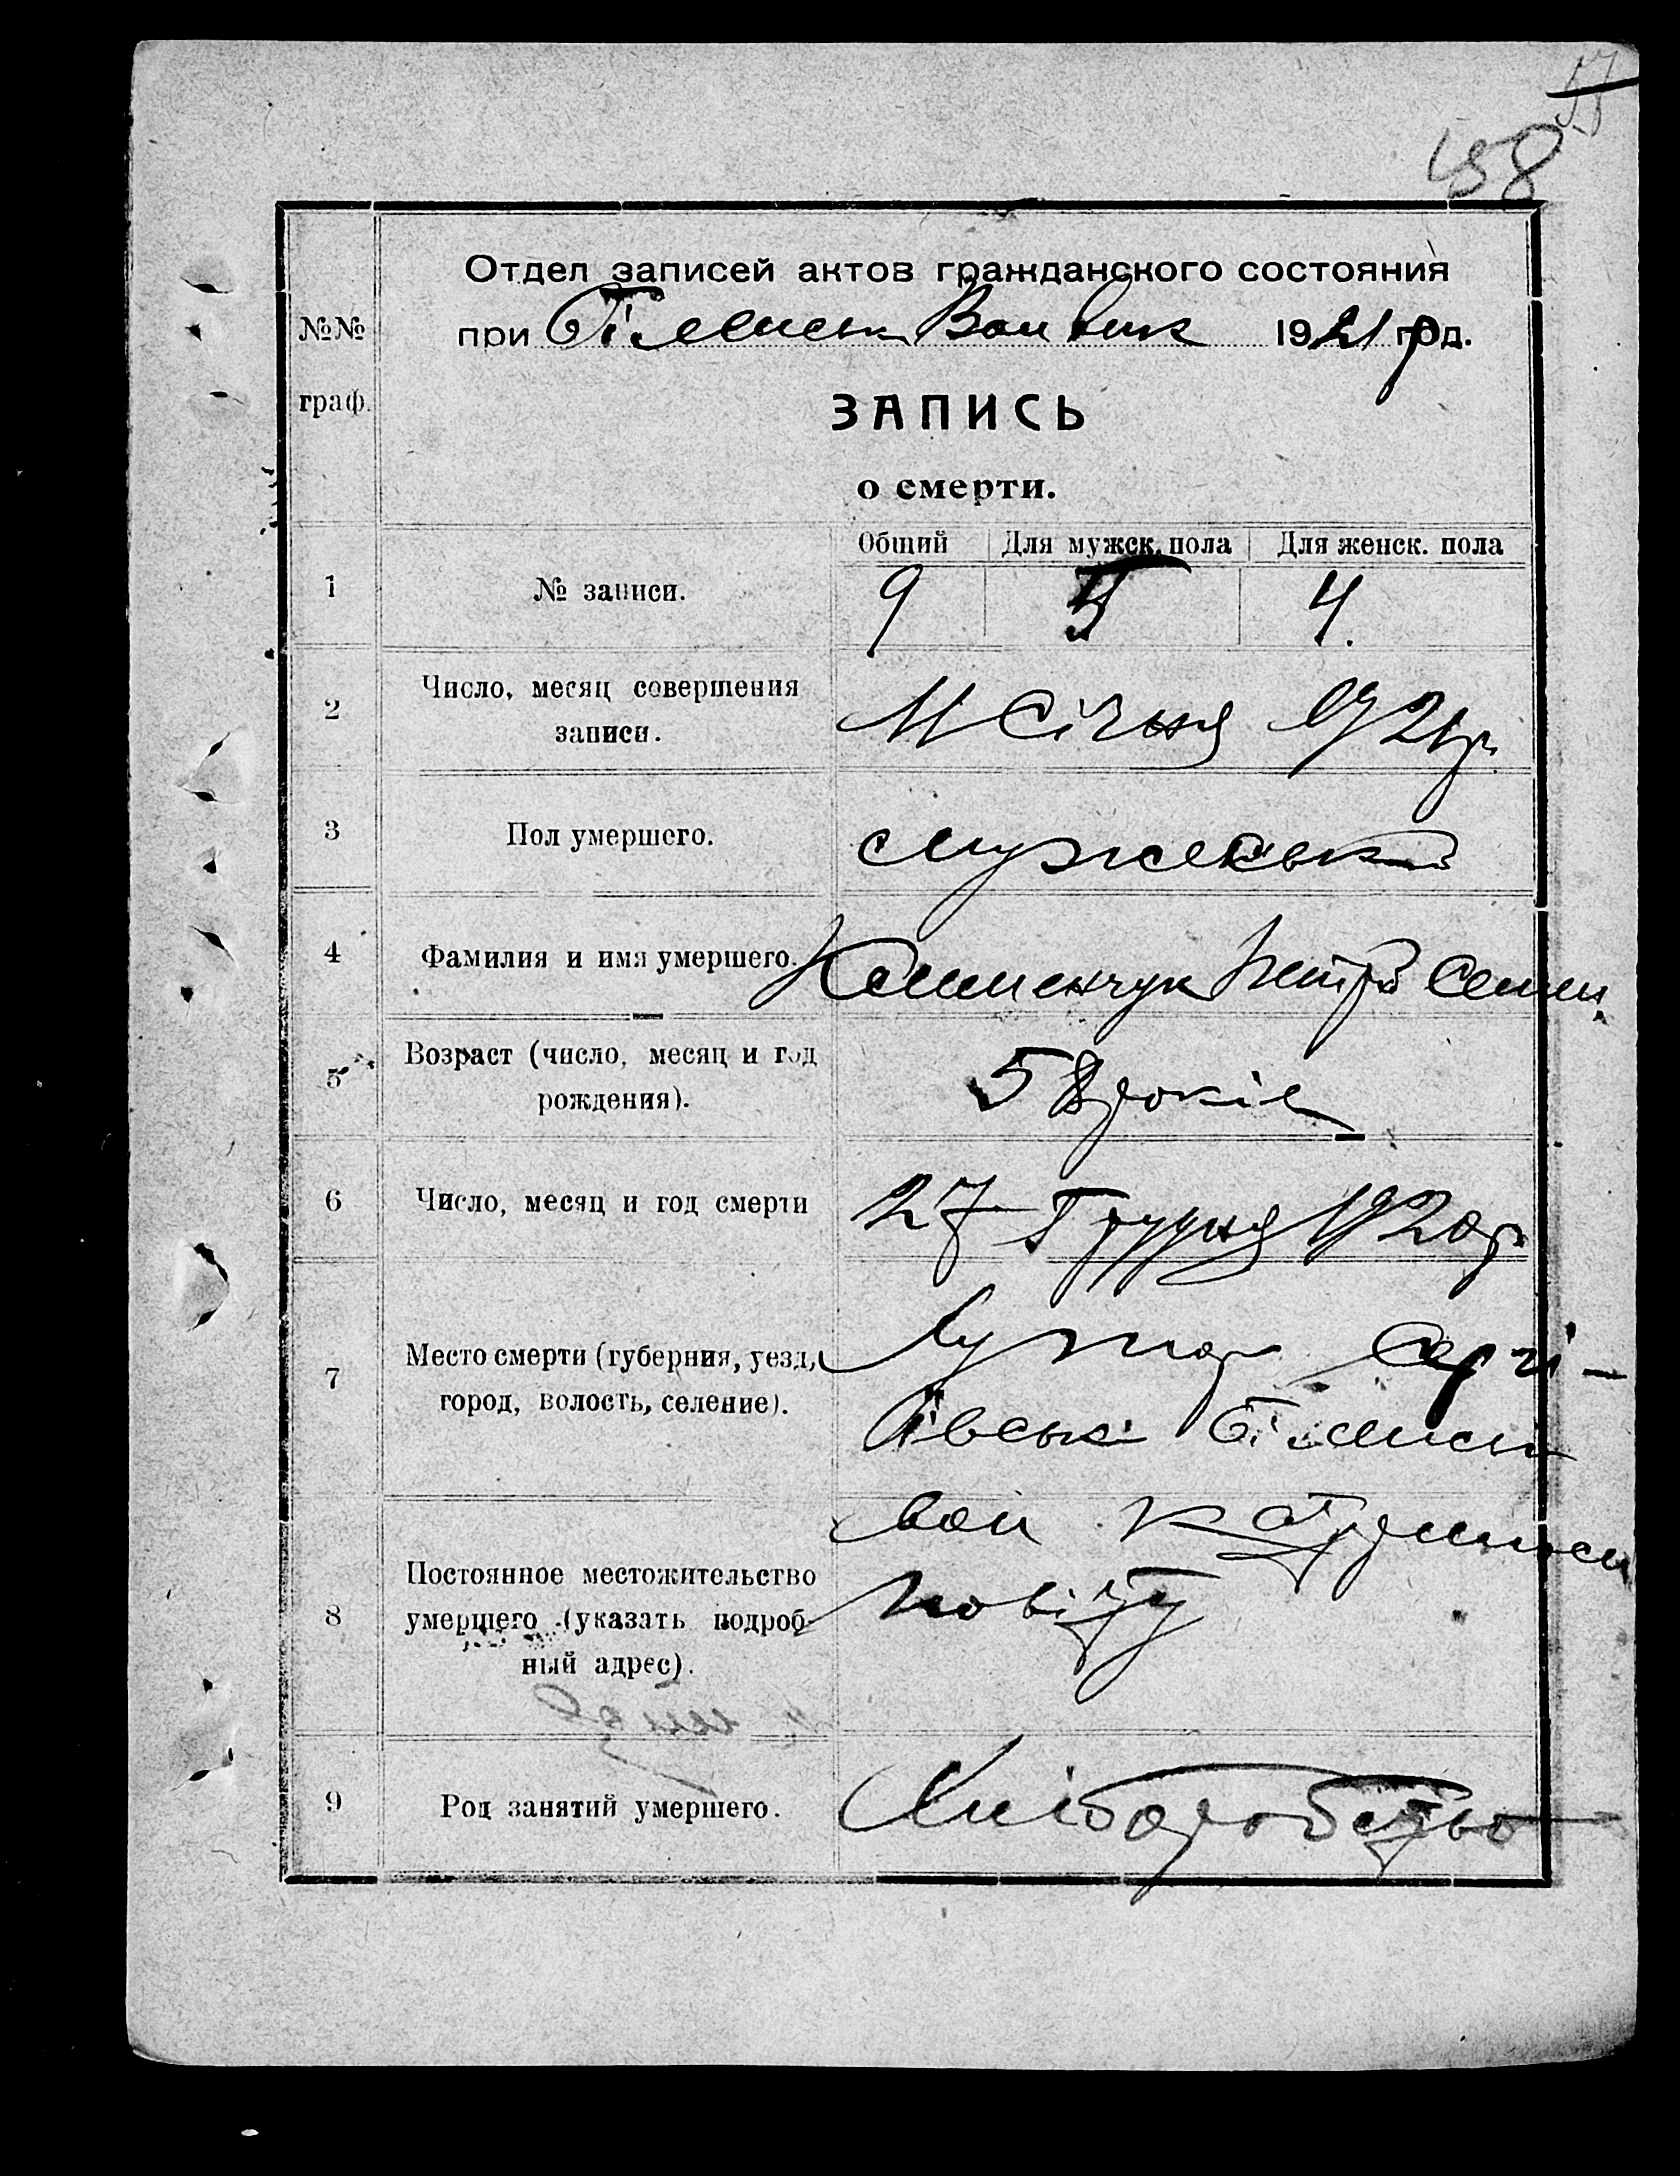 58
Отдел записей актов гражданского состояния
при Волвик 1921 год.
№№
граф.
ЗАПИСЬ
о смерти.
Общий Для мужск. пола Для женск. пола
1 № записи. 9 5 4.
2 Число, месяц совершения
записи. 11 Січня 1921 р.
3 Пол умершего. мужеський
4 Фамилия и имя умершего. Петро Семен
5 Возраст (число, месяц и год
рождения). 58 років
6 Число, месяц и год смерти 27 Грудня 1920 р.
7 Место смерти (губерния, уезд,
город, волость, селение). Хутор Сергі-
ївськ
вол
8 Постоянное местожительство
умершего (указать подроб-
ный адрес). повіту
9 Род занятий умершего. Хліборобство